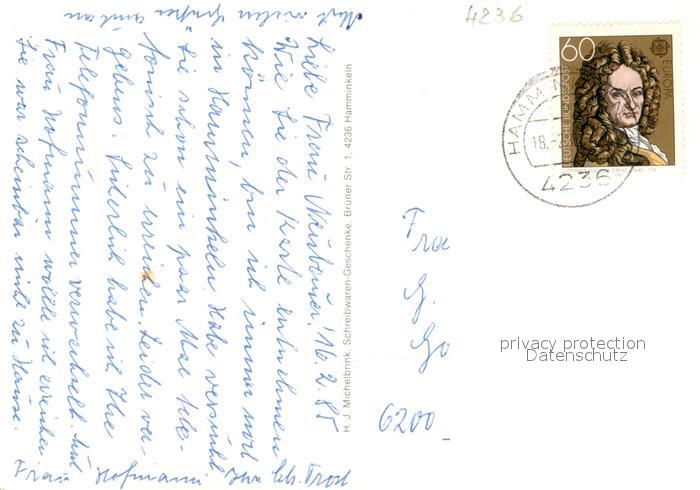 Liebe Frau Neubauer! 16.2.85
Wie Sie der Karte entnehmen
können, bin ich immer noch
in Hamminkeln. Habe versucht
Sie schon ein paar Mal tele-
fonisch zu erreichen. Leider ver-
gebens. Sicherlich habe ich Ihre
Telefonnummer verwechselt. Auch
Frau Hofmann wollte ich erreichen.
Sie war scheinbar nicht zu Hause.
Mit vielen Grüßen auch an
Frau Hofmann Ihre
H. J. Michelbrink, Schreibwaren-Geschenke, Brüner Str. 1, 4236 Hamminkeln
4236
60
DEUTSCHE BUNDESPOST
EUROPA
HAMMINK
18.
4236
Fra
G.
Go
6200
privacy protection
Datenschutz